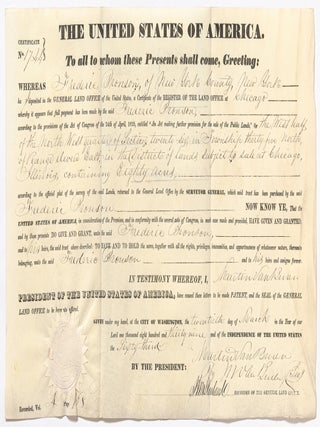 THE UNITED STATES OF AMERICA.
CERTIFICATE
No.
To all to whom these Presents shall come, Greeting:
WHEREAS Frederic Bronson, of New York County, New York
deposited in the GENERAL LAND OFFICE of the United States, a Certificate of the REGISTER OF THE LAND OFFICE at Chicago
whereby it appears that full payment has been made by the said Frederic Bronson,
according to the provisions of the Act of Congress of the 24th of April, 1820, entitled "An Act making further provision for the sale of the Public Lands," for the West half
of the North West quarter of Section twenty six in Township thirty five North
of Range eleven East in the District of lands subject to sale at Chicago,
Illinois, containing Eighty acres
according to the official plat of the survey of the said Lands, returned to the General Land Office by the SURVEYOR GENERAL, which said tract has been purchased by the said
Frederic Bronson NOW KNOW YE, That the
UNITED STATES OF AMERICA, in consideration of the Premises, and in conformity with the several acts of Congress, in such case made and provided, HAVE GIVEN AND GRANTED,
and by these presents DO GIVE AND GRANT, unto the said Frederic Bronson,
and to his heirs, the said tract above described: TO HAVE AND TO HOLD the same, together with all the rights, privileges, immunities, and appurtenances of whatsoever nature, thereunto
belonging, unto the said Frederic Bronson and to his heirs and assigns forever.
IN TESTIMONY WHEREOF, I, Martin Van Buren
PRESIDENT OF THE UNITED STATES OF AMERICA, have caused these letters to be made PATENT, and the SEAL of the GENERAL
LAND OFFICE to be hereunto affixed.
GIVEN under my hand, at the CITY OF WASHINGTON, the twentieth day of March in the Year of our
Lord one thousand eight hundred and thirty nine and of the INDEPENDENCE OF THE UNITED STATES
the sixty third
BY THE PRESIDENT: Martin Van Buren
By M Van Buren
RECORDER OF THE GENERAL LAND OFFICE.
Recorded, Vol.